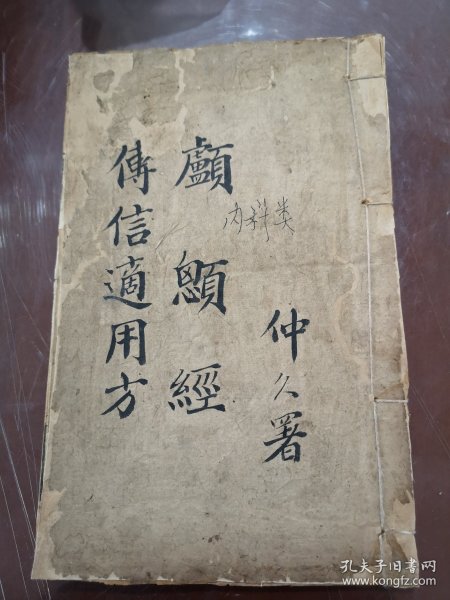 仲久署
内科类
顱顖經
傳信適用方
孔夫子旧书网
www.kongfz.com